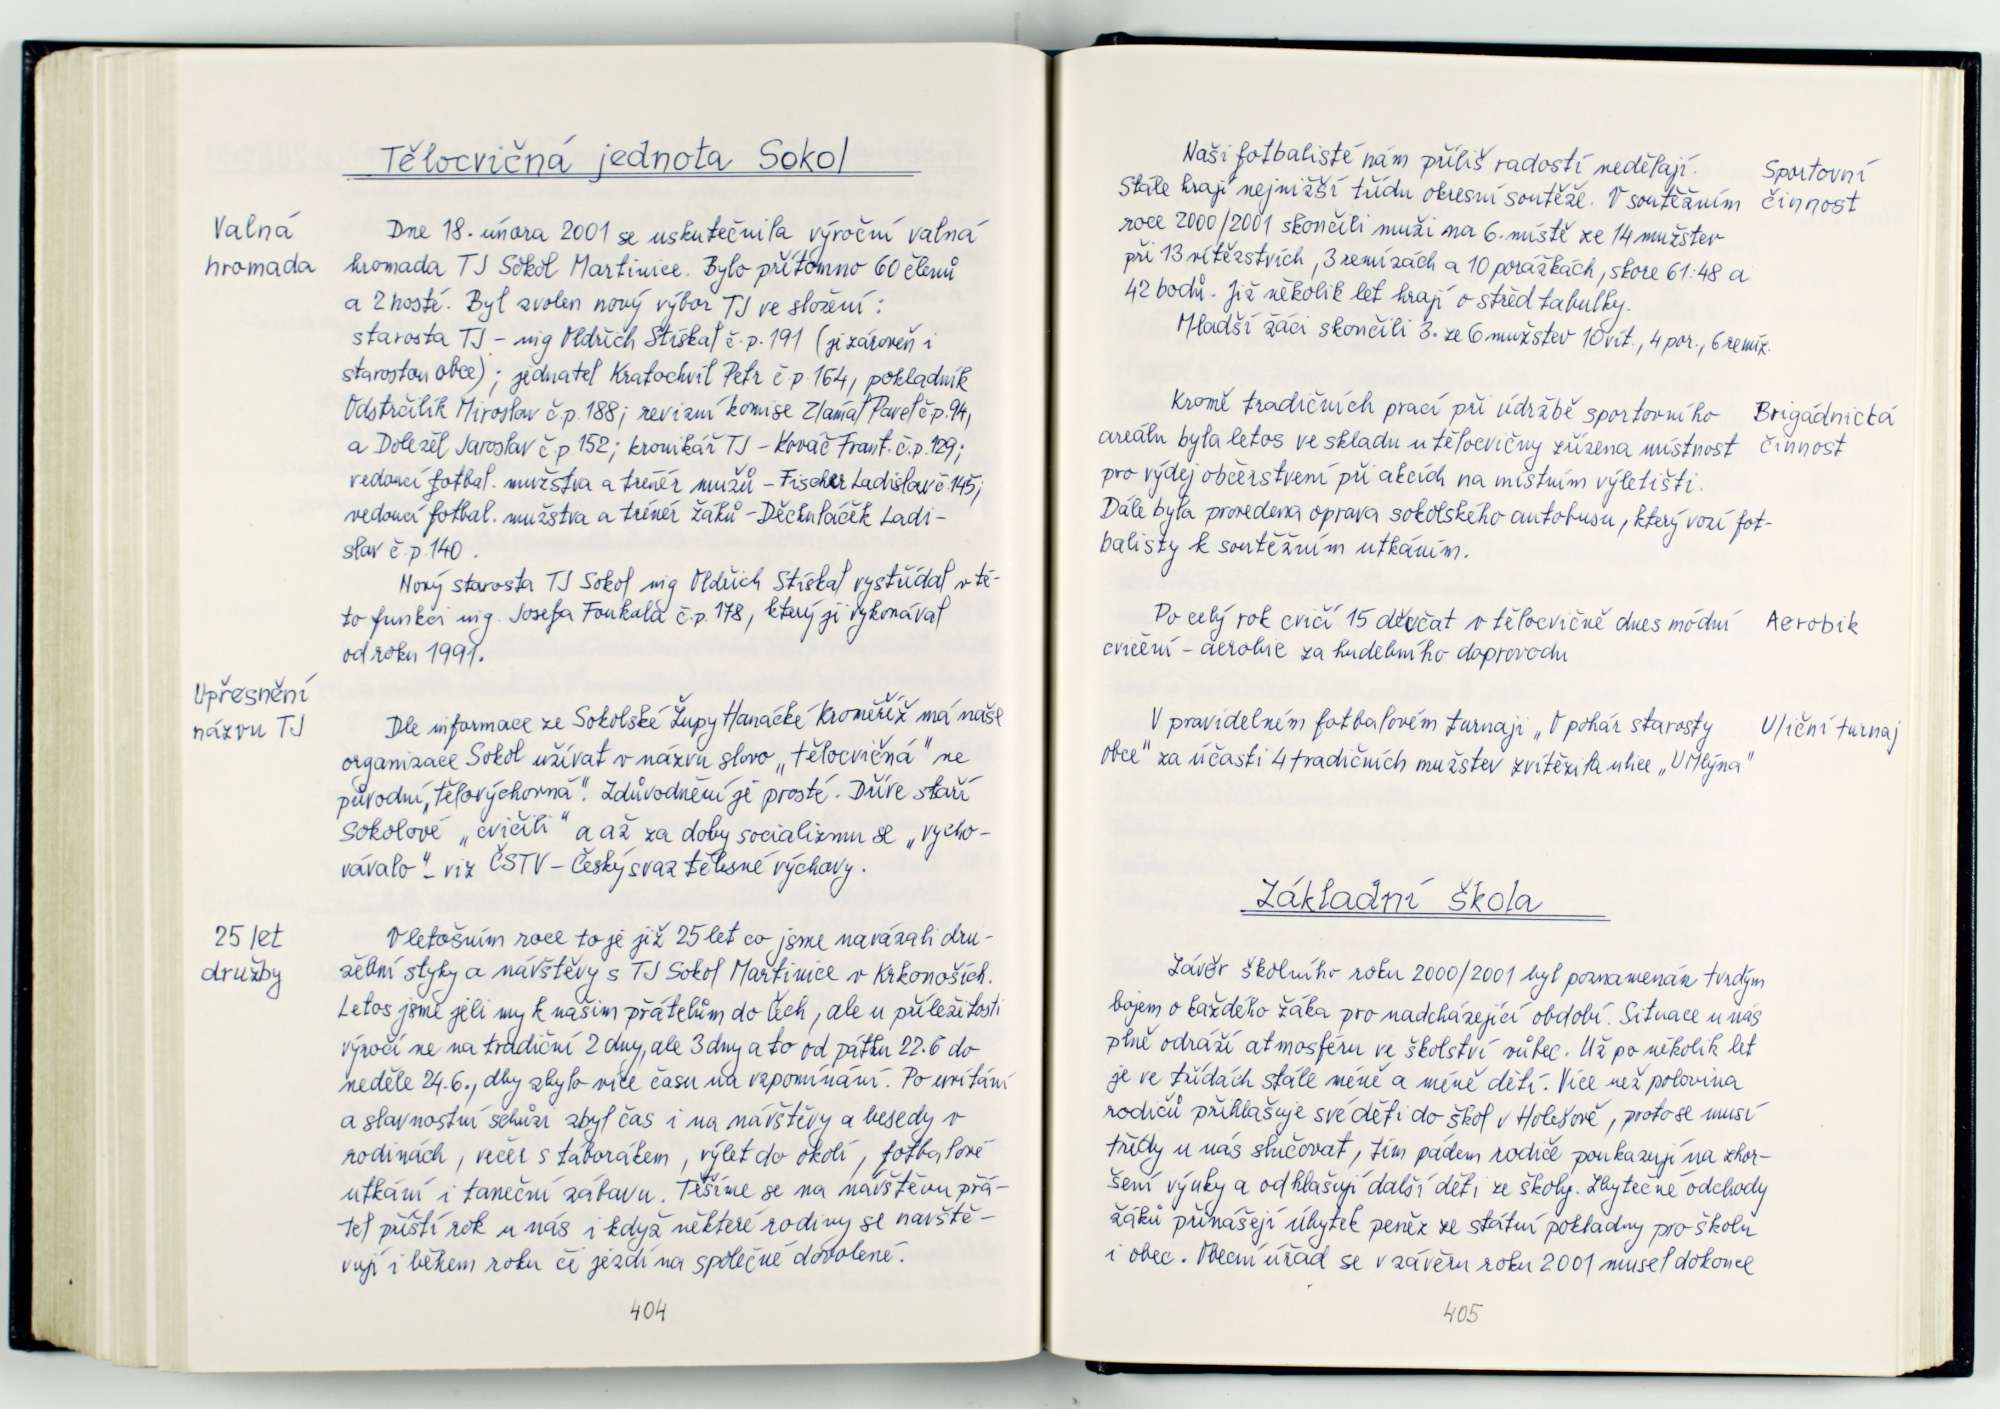 Tělocvičná jednota Sokol
Valná
hromada
Dne 18. února 2001 se uskutečnila výroční valná
hromada TJ Sokol Martinice. Bylo přítomno 60 členů
a 2 hosté. Byl zvolen nový výbor TJ ve složení:
starosta TJ - ing Oldřich Stískal č.p. 191 (je zároveň i
starostou obce); jednatel Kratochvíl Petr č p. 164, pokladník
Odstrčilík Miroslav č.p. 188; revizní komise Zlámal Pavel č p. 94,
a Doležel Jaroslav č.p 152; kronikář TJ - Kovač Frant. č.p. 129;
vedoucí fotbal. mužstva a trenér mužů - Fischer Ladislav č. 145;
vedoucí fotbal. mužstva a trénér žáků - Děckuláček Ladi-
slav č.p. 140.
Nový starosta TJ Sokol ing Oldřich Stískal vystřídal v té-
to funkci ing. Josefa Foukala č.p. 178, který ji vykonával
od roku 1991.
Upřesnění
názvu TJ
Dle informace ze Sokolské Župy Hanácké Kroměříž má naše
organizace Sokol užívat v názvu slovo „tělocvičná" ne
původní „tělovýchovná". Zdůvodnění je prosté. Dříve staří
Sokolové „cvičili" a až za doby socializmu se „vycho-
vávalo" - viz ČSTV - Český svaz tělesné výchovy.
25 let
družby
V letošním roce to je již 25 let co jsme navázali dru-
žební styky a návštěvy s TJ Sokol Martinice v Krkonoších.
Letos jsme jeli my k našim přátelům do Čech, ale u příležitosti
výročí ne na tradiční 2 dny, ale 3 dny a to od pátku 22.6 do
neděle 24.6., aby zbylo více času na vzpomínání. Po uvítání
a slavnostní schůzi zbyl čas i na návštěvy a besedy v
rodinách, večer s táborákem, výlet do okolí, fotbalové
utkání i taneční zábavu. Těšíme se na návštěvu přá-
tel příští rok u nás i když některé rodiny se navště-
vují i během roku či jezdí na společné dovolené.
404
Naši fotbalisté nám příliš radostí nedělají.
Stále hrají nejnižší třídu okresní soutěže. V soutěžním
roce 2000/2001 skončili muži na 6. místě ze 14 mužstev
při 13 vítězstvích, 3 remízách a 10 porážkách, skore 61:48 a
42 bodů. Již několik let hrají o střed tabulky.
Mladší žáci skončili 3. ze 6 mužstev 10 vít., 4 por., 6 remíz.
Sportovní
činnost
Kromě tradičních prací při údržbě sportovního
areálu byla letos ve skladu u tělocvičny zřízena místnost
pro výdej občerstvení při akcích na místním výletišti.
Dále byla provedena oprava sokolského autobusu, který vozí fot-
balisty k soutěžním utkáním.
Brigádnická
činnost
Po celý rok cvičí 15 děvčat v tělocvičně dnes módní
cvičení - aerobic za hudebního doprovodu
Aerobik
V pravidelném fotbalovém turnaji „O pohár starosty
obce" za účasti 4 tradičních mužstev zvítězila ulice „U Mlýna"
Uliční turnaj
Základní škola
Závěr školního roku 2000/2001 byl poznamenán tvrdým
bojem o každého žáka pro nadcházející období. Situace u nás
plně odráží atmosféru ve školství vůbec. Už po několik let
je ve třídách stále méně a méně dětí. Více než polovina
rodičů přihlašuje své děti do škol v Holešově, proto se musí
třídy u nás slučovat, tím pádem rodiče poukazují na zhor-
šení výuky a odhlašují další děti ze školy. Zbytečné odchody
žáků přinášejí úbytek peněz ze státní pokladny pro školu
i obec. Obecní úřad se v závěru roku 2001 musel dokonce
405